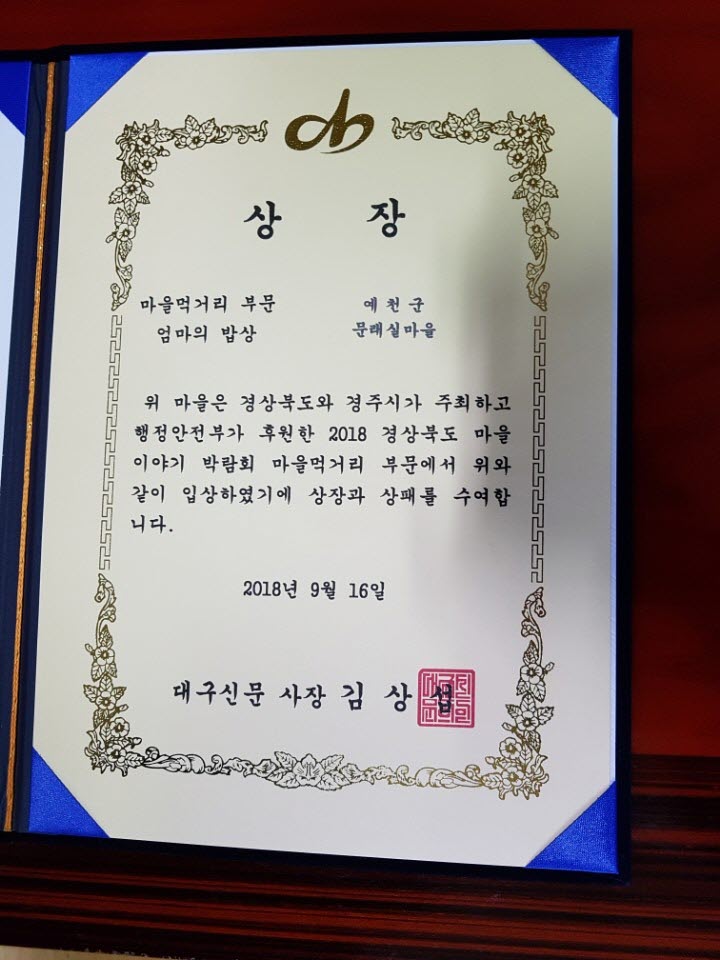 상 장
마을먹거리 부문 예천군
엄마의 밥상 문래실마을
위 마을은 경상북도와 경주시가 주최하고
행정안전부가 후원한 2018 경상북도 마을
이야기 박람회 마을먹거리 부문에서 위와
같이 입상하였기에 상장과 상패를 수여합
니다.
2018년 9월 16일
대구신문 사장 김 상 섭